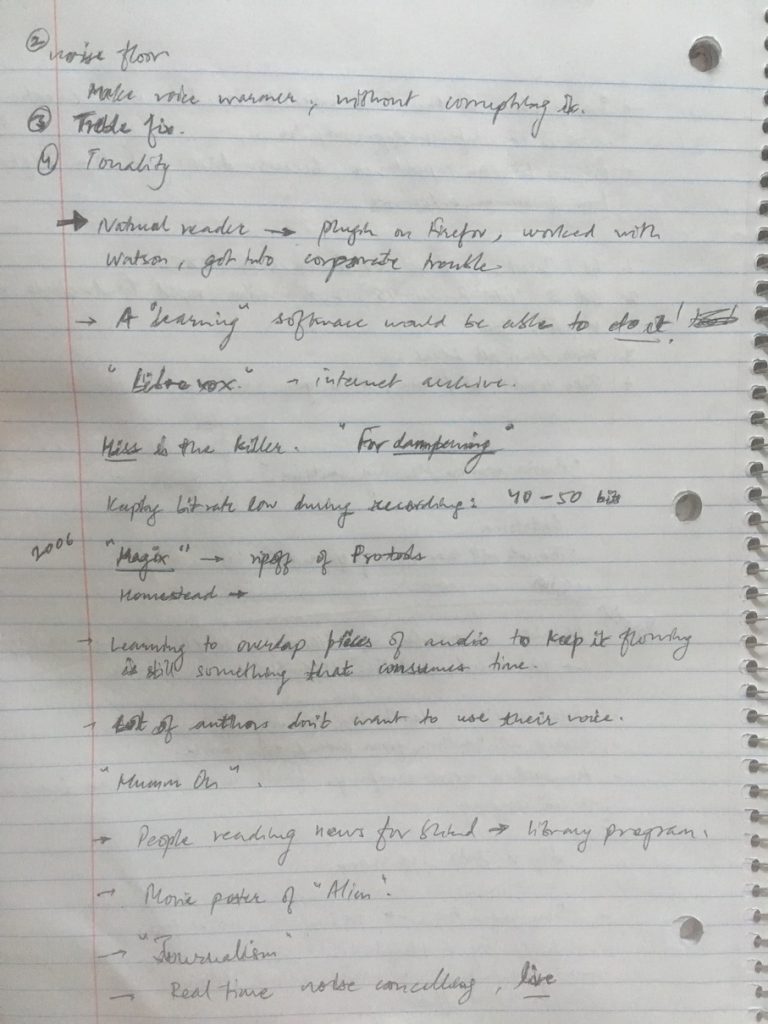 ② noise floor
Make voice warmer, without corrupting it.
③ Treble fix.
④ Tonality
→ Natural reader → plugin on Firefox, worked with
Watson, got into corporate trouble
→ A "learning" software would be able to do it!
"Libre vox." → internet archive.
Hiss is the killer. "For dampening"
Keeping bit rate low during recording: 40-50 bits
2006 "Magix" → ripoff of Protools
Homestead →
→ Learning to overlap pieces of audio to keep it flowing
is still something that consumes time.
→ Lot of authors don't want to use their voice.
On".
→ People reading news for blind → library program.
→ Movie poster of "Alien".
→ "Journalism"
→ Real time noise cancelling, live